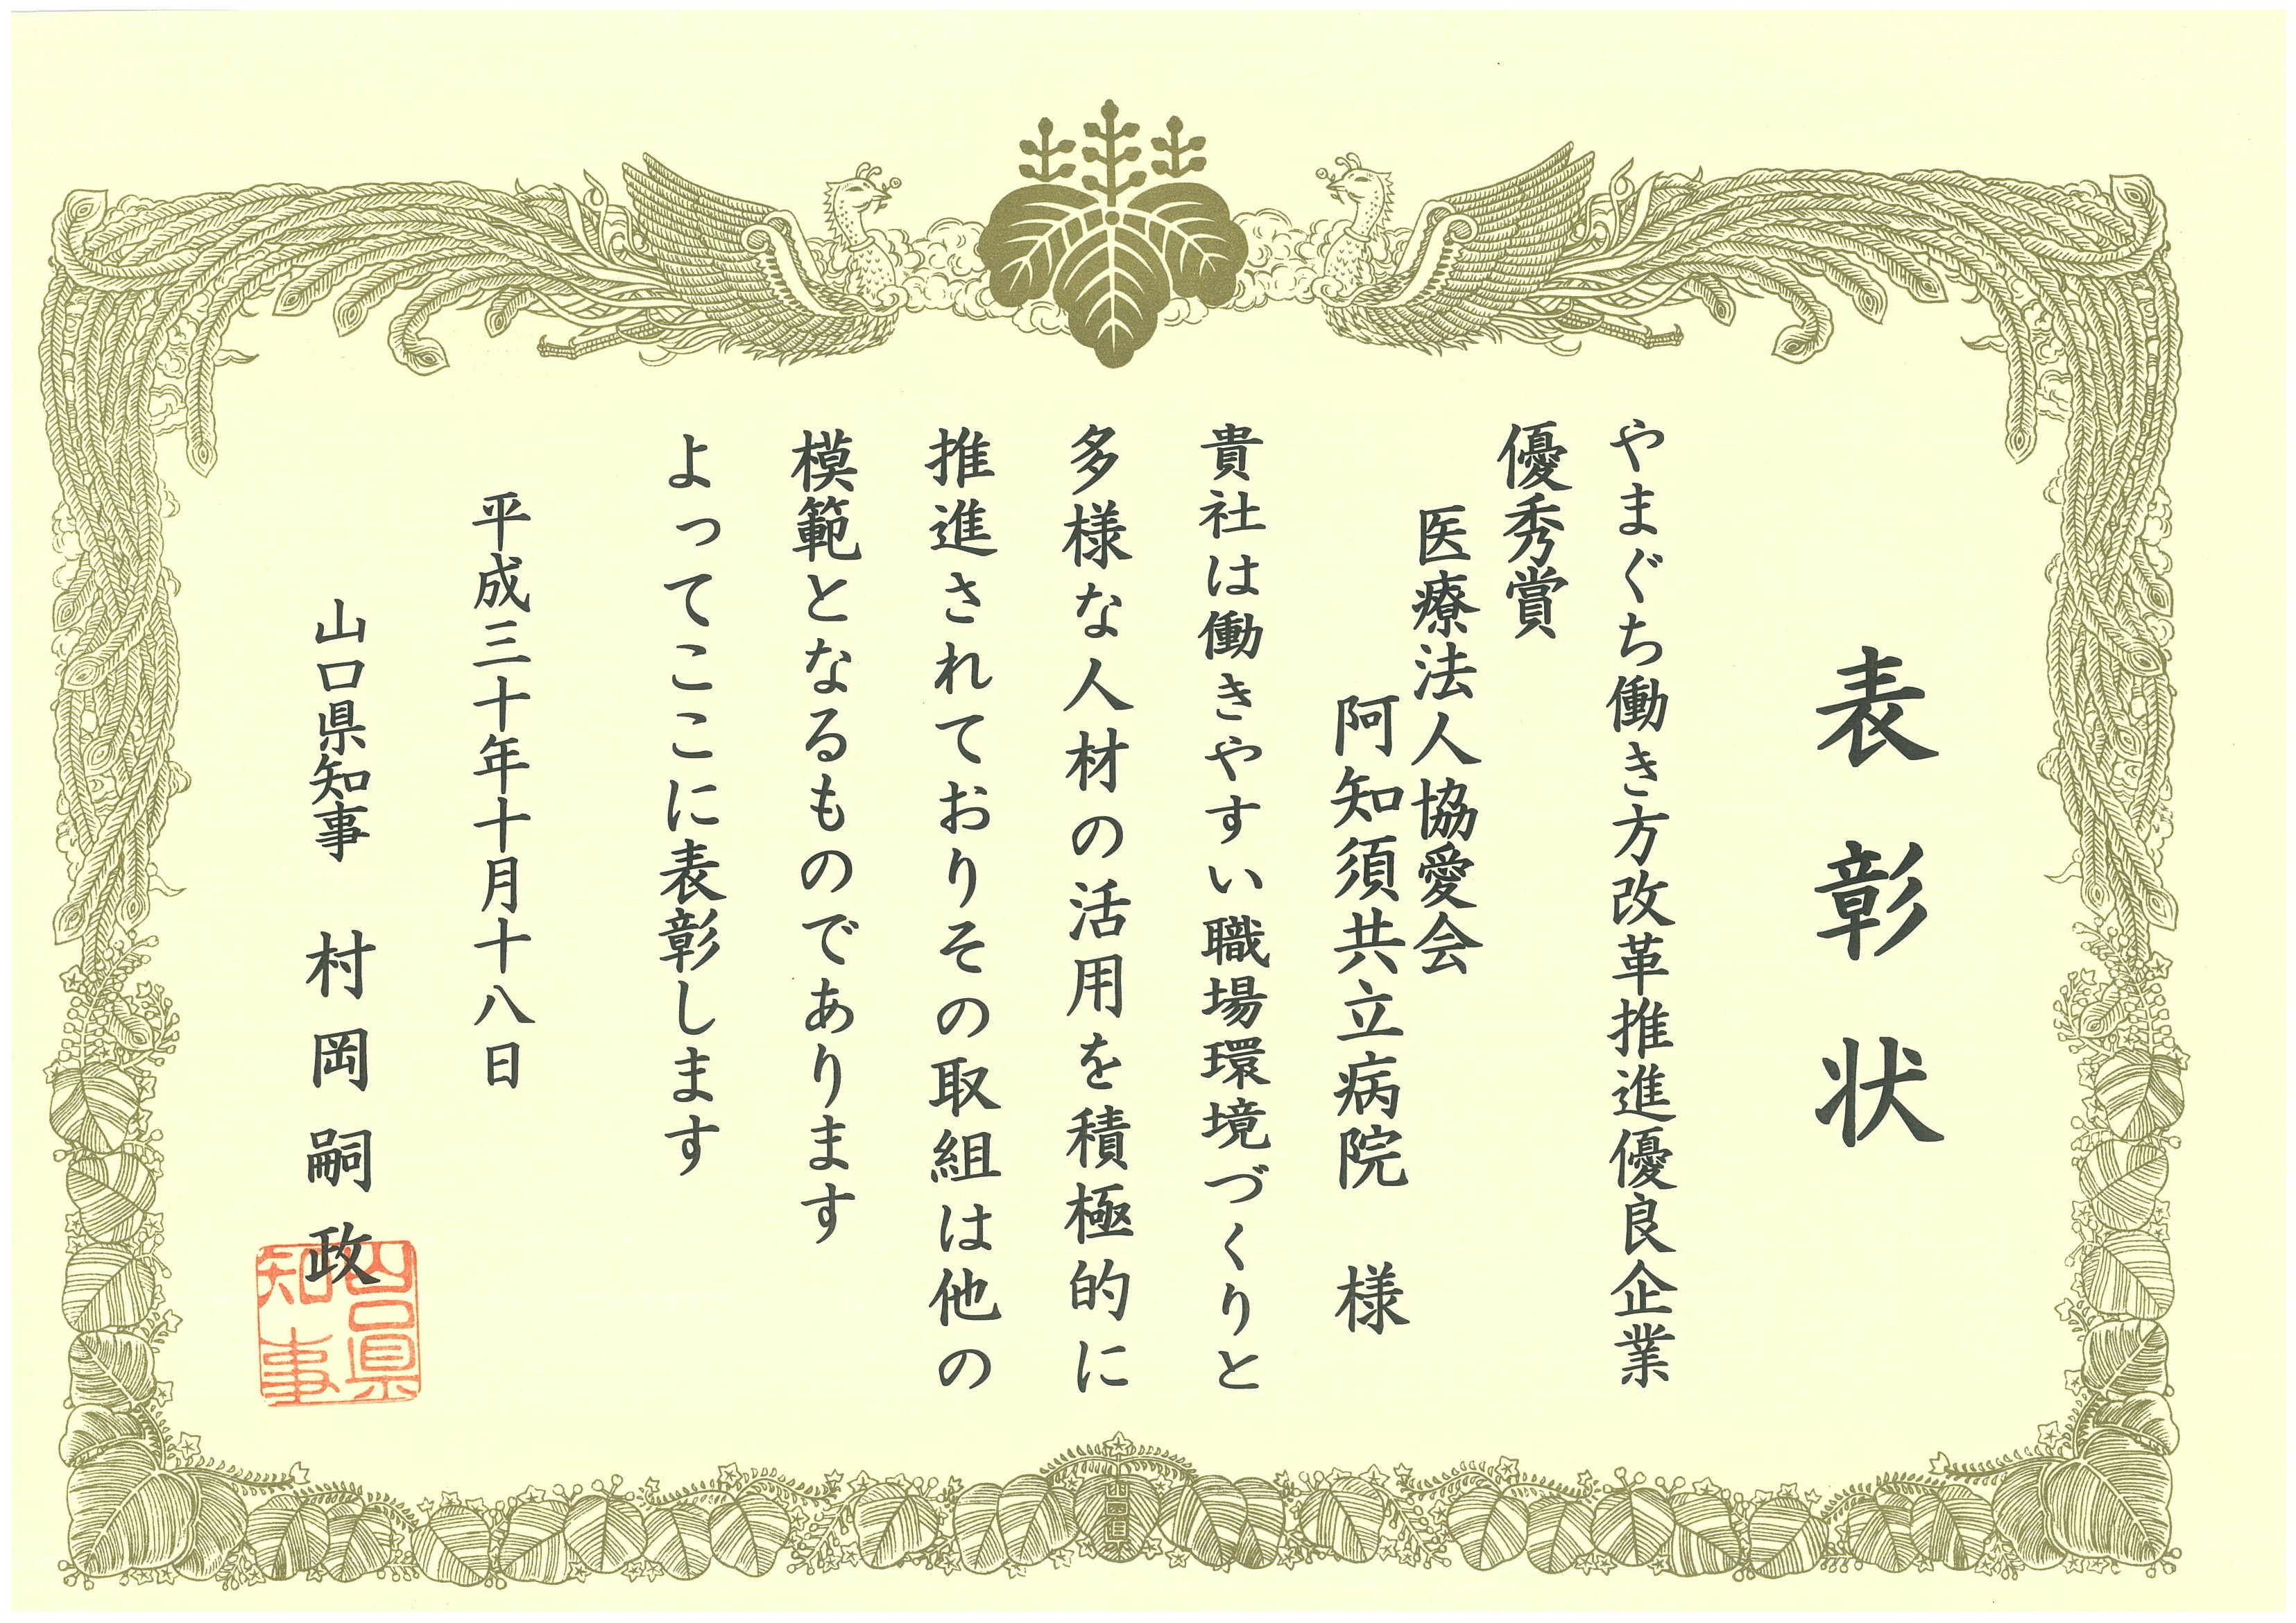 表彰状
やまぐち働き方改革推進優良企業
優秀賞
医療法人協愛会
阿知須共立病院　様
貴社は働きやすい職場環境づくりと
多様な人材の活用を積極的に
推進されておりその取組は他の
模範となるものであります
よってここに表彰します
平成三十年十月十八日
山口県知事　村岡嗣政
山口県
知事
山口県